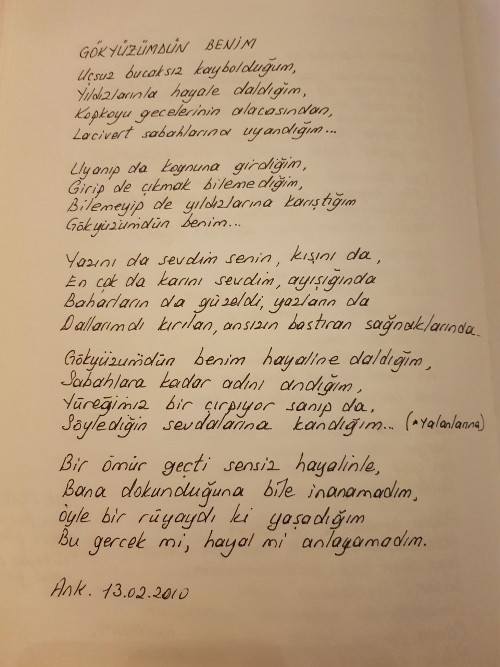 GÖKYÜZÜMDÜN BENİM
Uçsuz bucaksız kaybolduğum,
Yıldızlarınla hayale daldığım,
Kopkoyu gecelerinin alacasından,
Lacivert sabahlarına uyandığım...
Uyanıp da koynuna girdiğim,
Girip de çıkmak bilemediğim,
Bilemeyip de yıldızlarına karıştığım
Gökyüzümdün benim...
Yazını da sevdim senin, kışını da,
En çok da karını sevdim, ayışığında
Baharların da güzeldi, yazların da
Dallarımdı kırılan, ansızın bastıran sağnaklarında.
Gökyüzümdün benim hayaline daldığım,
Sabahlara kadar adını andığım,
Yüreğimiz bir çırpıyor sanıp da,
Söylediğin sevdalarına kandığım... (*Yalanlarına)
Bir ömür geçti sensiz hayalinle,
Bana dokunduğuna bile inanamadım,
Öyle bir rüyaydı ki yaşadığım
Bu gerçek mi, hayal mi anlayamadım.
Ank. 13.02.2010